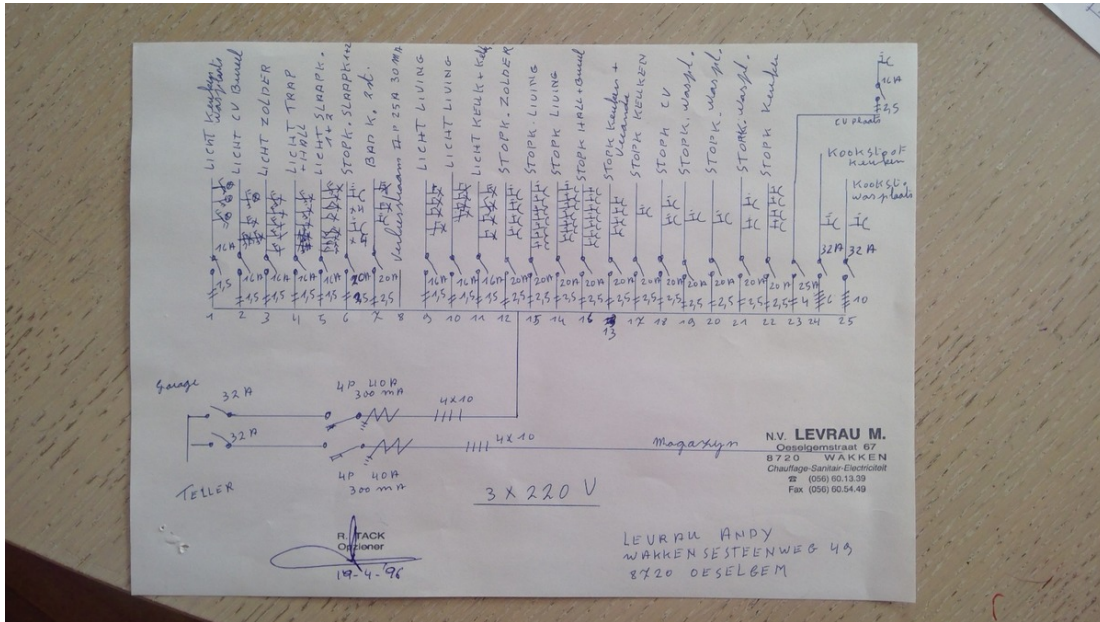 LICHT Keuken wasplaats
LICHT CV Bureel
LICHT ZOLDER
LICHT TRAP + HALL
LICHT SLAAPK. 1+2
STOPK. SLAAPK 1+2
BADK. 2st.
Verliesstroom 4P 25A 30 mA
LICHT LIVING
LICHT LIVING
LICHT KEUK +
STOPK. ZOLDER
STOPK. LIVING
STOPK LIVING
STOPK HALL + Bureel
STOPK Keuken + Veranda
STOPK KEUKEN
STOPK CV
STOPK. waspl.
STOPK. waspl.
STOPK. waspl.
STOPK Keuken
16A
2,5
CV plaats
Kookstoof Keuken
Kookst. wasplaats
16A 16A 16A 16A 16A 20A 20A 16A 16A 16A 20A 20A 20A 20A 20A 20A 20A 20A 20A 20A 20A 25A 32A 32A
1,5 1,5 1,5 1,5 1,5 2,5 2,5 1,5 1,5 1,5 2,5 2,5 2,5 2,5 2,5 2,5 2,5 2,5 2,5 2,5 2,5 4 6 10
1 2 3 4 5 6 7 8 9 10 11 12 15 14 16 13 17 18 19 20 21 22 23 24 25
Garage
32A
4P 40A
300 mA
4x10
32A
4x10
Magazijn
4P 40A
300 mA
TELLER
3 x 220 V
N.V. LEVRAU M.
Oeselgemstraat 67
8720 WAKKEN
Chauffage-Sanitair-Electriciteit
☎ (056) 60.13.39
Fax (056) 60.54.49
R. TACK
Opziener
19-4-'96
LEVRAU ANDY
WAKKENSESTEENWEG 49
8720 OESELGEM